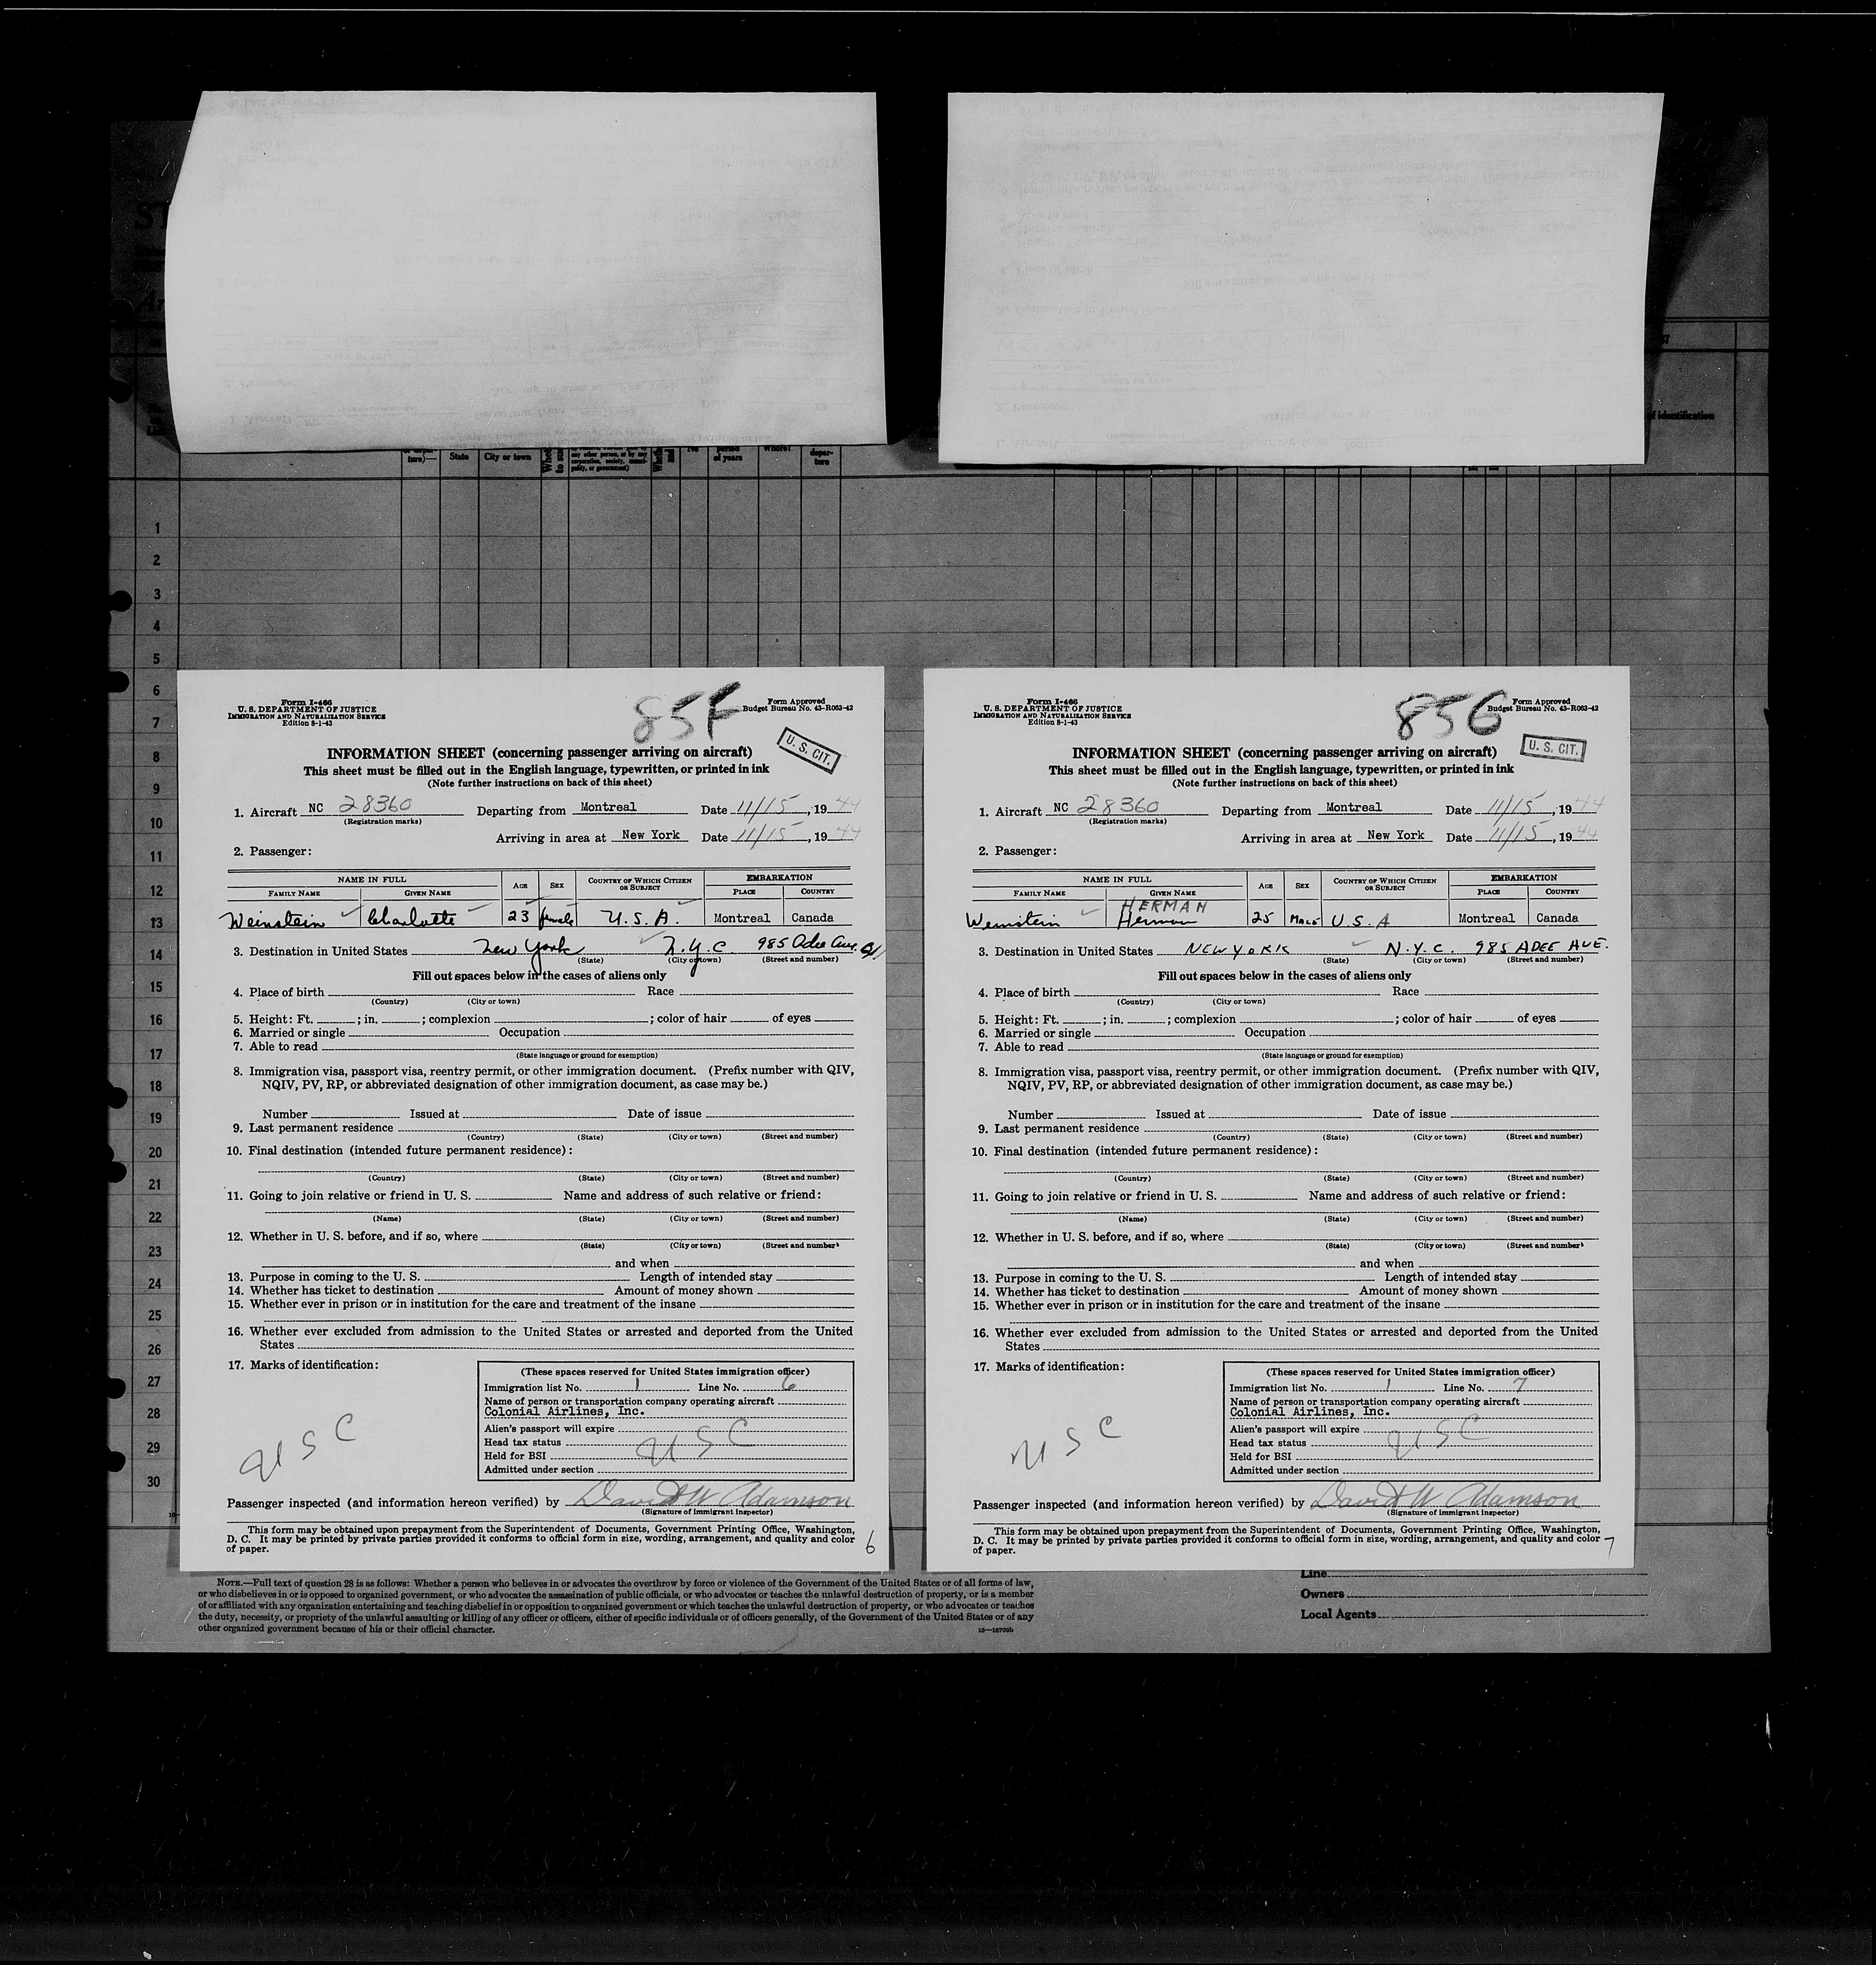 ture)—
State
City or town
any other person, or by any
corporation, society, munici-
pality, or government)
period
of years
where?
depar-
ture
of identification
1
2
3
4
5
6
7
8
9
10
11
12
13
14
15
16
17
18
19
20
21
22
23
24
25
26
27
28
29
30
Form I-466
U. S. DEPARTMENT OF JUSTICE
IMMIGRATION AND NATURALIZATION SERVICE
Edition 8-1-43
85F
Form Approved
Budget Bureau No. 43-R063-42
U. S. CIT.
INFORMATION SHEET (concerning passenger arriving on aircraft)
This sheet must be filled out in the English language, typewritten, or printed in ink
(Note further instructions on back of this sheet)
1. Aircraft NC 28360 Departing from Montreal Date 11/15, 1944
(Registration marks)
Arriving in area at New York Date 11/15, 1944
2. Passenger:
NAME IN FULL AGE SEX COUNTRY OF WHICH CITIZEN OR SUBJECT EMBARKATION
FAMILY NAME GIVEN NAME PLACE COUNTRY
Weinstein Charlotte 23 female U.S.A. Montreal Canada
3. Destination in United States New York N.Y.C 985 Adee Ave.
(State) (City or town) (Street and number)
Fill out spaces below in the cases of aliens only
4. Place of birth Race
(Country) (City or town)
5. Height: Ft. ; in. ; complexion ; color of hair of eyes
6. Married or single Occupation
7. Able to read
(State language or ground for exemption)
8. Immigration visa, passport visa, reentry permit, or other immigration document. (Prefix number with QIV,
NQIV, PV, RP, or abbreviated designation of other immigration document, as case may be.)
Number Issued at Date of issue
9. Last permanent residence
(Country) (State) (City or town) (Street and number)
10. Final destination (intended future permanent residence):
(Country) (State) (City or town) (Street and number)
11. Going to join relative or friend in U. S. Name and address of such relative or friend:
(Name) (State) (City or town) (Street and number)
12. Whether in U. S. before, and if so, where
(State) (City or town) (Street and number)
and when
13. Purpose in coming to the U. S. Length of intended stay
14. Whether has ticket to destination Amount of money shown
15. Whether ever in prison or in institution for the care and treatment of the insane
16. Whether ever excluded from admission to the United States or arrested and deported from the United
States
17. Marks of identification:
USC
(These spaces reserved for United States immigration officer)
Immigration list No. 1 Line No. 6
Name of person or transportation company operating aircraft
Colonial Airlines, Inc.
Alien's passport will expire
Head tax status USC
Held for BSI
Admitted under section
Passenger inspected (and information hereon verified) by David W Adamson
(Signature of immigrant inspector)
This form may be obtained upon prepayment from the Superintendent of Documents, Government Printing Office, Washington,
D. C. It may be printed by private parties provided it conforms to official form in size, wording, arrangement, and quality and color
of paper.
6
Form I-466
U. S. DEPARTMENT OF JUSTICE
IMMIGRATION AND NATURALIZATION SERVICE
Edition 8-1-43
85G
Form Approved
Budget Bureau No. 43-R063-42
U. S. CIT.
INFORMATION SHEET (concerning passenger arriving on aircraft)
This sheet must be filled out in the English language, typewritten, or printed in ink
(Note further instructions on back of this sheet)
1. Aircraft NC 28360 Departing from Montreal Date 11/15, 1944
(Registration marks)
Arriving in area at New York Date 11/15, 1944
2. Passenger:
NAME IN FULL AGE SEX COUNTRY OF WHICH CITIZEN OR SUBJECT EMBARKATION
FAMILY NAME GIVEN NAME PLACE COUNTRY
HERMAN
Weinstein Herman 25 MALE U.S.A Montreal Canada
3. Destination in United States NEW YORK N.Y.C. 985 ADEE AVE.
(State) (City or town) (Street and number)
Fill out spaces below in the cases of aliens only
4. Place of birth Race
(Country) (City or town)
5. Height: Ft. ; in. ; complexion ; color of hair of eyes
6. Married or single Occupation
7. Able to read
(State language or ground for exemption)
8. Immigration visa, passport visa, reentry permit, or other immigration document. (Prefix number with QIV,
NQIV, PV, RP, or abbreviated designation of other immigration document, as case may be.)
Number Issued at Date of issue
9. Last permanent residence
(Country) (State) (City or town) (Street and number)
10. Final destination (intended future permanent residence):
(Country) (State) (City or town) (Street and number)
11. Going to join relative or friend in U. S. Name and address of such relative or friend:
(Name) (State) (City or town) (Street and number)
12. Whether in U. S. before, and if so, where
(State) (City or town) (Street and number)
and when
13. Purpose in coming to the U. S. Length of intended stay
14. Whether has ticket to destination Amount of money shown
15. Whether ever in prison or in institution for the care and treatment of the insane
16. Whether ever excluded from admission to the United States or arrested and deported from the United
States
17. Marks of identification:
USC
(These spaces reserved for United States immigration officer)
Immigration list No. 1 Line No. 7
Name of person or transportation company operating aircraft
Colonial Airlines, Inc.
Alien's passport will expire
Head tax status USC
Held for BSI
Admitted under section
Passenger inspected (and information hereon verified) by David W Adamson
(Signature of immigrant inspector)
This form may be obtained upon prepayment from the Superintendent of Documents, Government Printing Office, Washington,
D. C. It may be printed by private parties provided it conforms to official form in size, wording, arrangement, and quality and color
of paper.
7
NOTE.—Full text of question 28 is as follows: Whether a person who believes in or advocates the overthrow by force or violence of the Government of the United States or of all forms of law,
or who disbelieves in or is opposed to organized government, or who advocates the assassination of public officials, or who advocates or teaches the unlawful destruction of property, or is a member
of or affiliated with any organization entertaining and teaching disbelief in or opposition to organized government or which teaches the unlawful destruction of property, or who advocates or teaches
the duty, necessity, or propriety of the unlawful assaulting or killing of any officer or officers, either of specific individuals or of officers generally, of the Government of the United States or of any
other organized government because of his or their official character.
16—18709b
Line
Owners
Local Agents